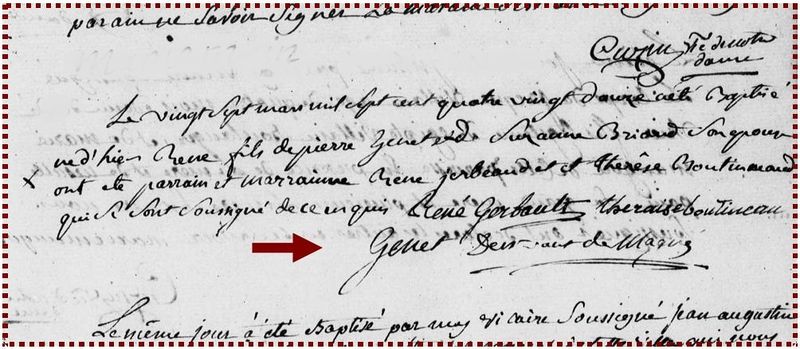 parain ne Savoir Signer La maraine
Cuzin Vre de notre
dame
Le vingt Sept mars mil Sept cent quatre vingt douze a été Baptisé
né d'hier Rene fils de pierre Genet et de Suzanne Briand Son epouse
ont été parrain et marrainne Rene Gerbeaud et Therèse Boutin
qui Se sont Soussigné de ce enquis Rene Gerbault theraise boutineau
Genet Desservant de
Le même jour à été Baptisé par moy vicaire Soussigné jean augustin